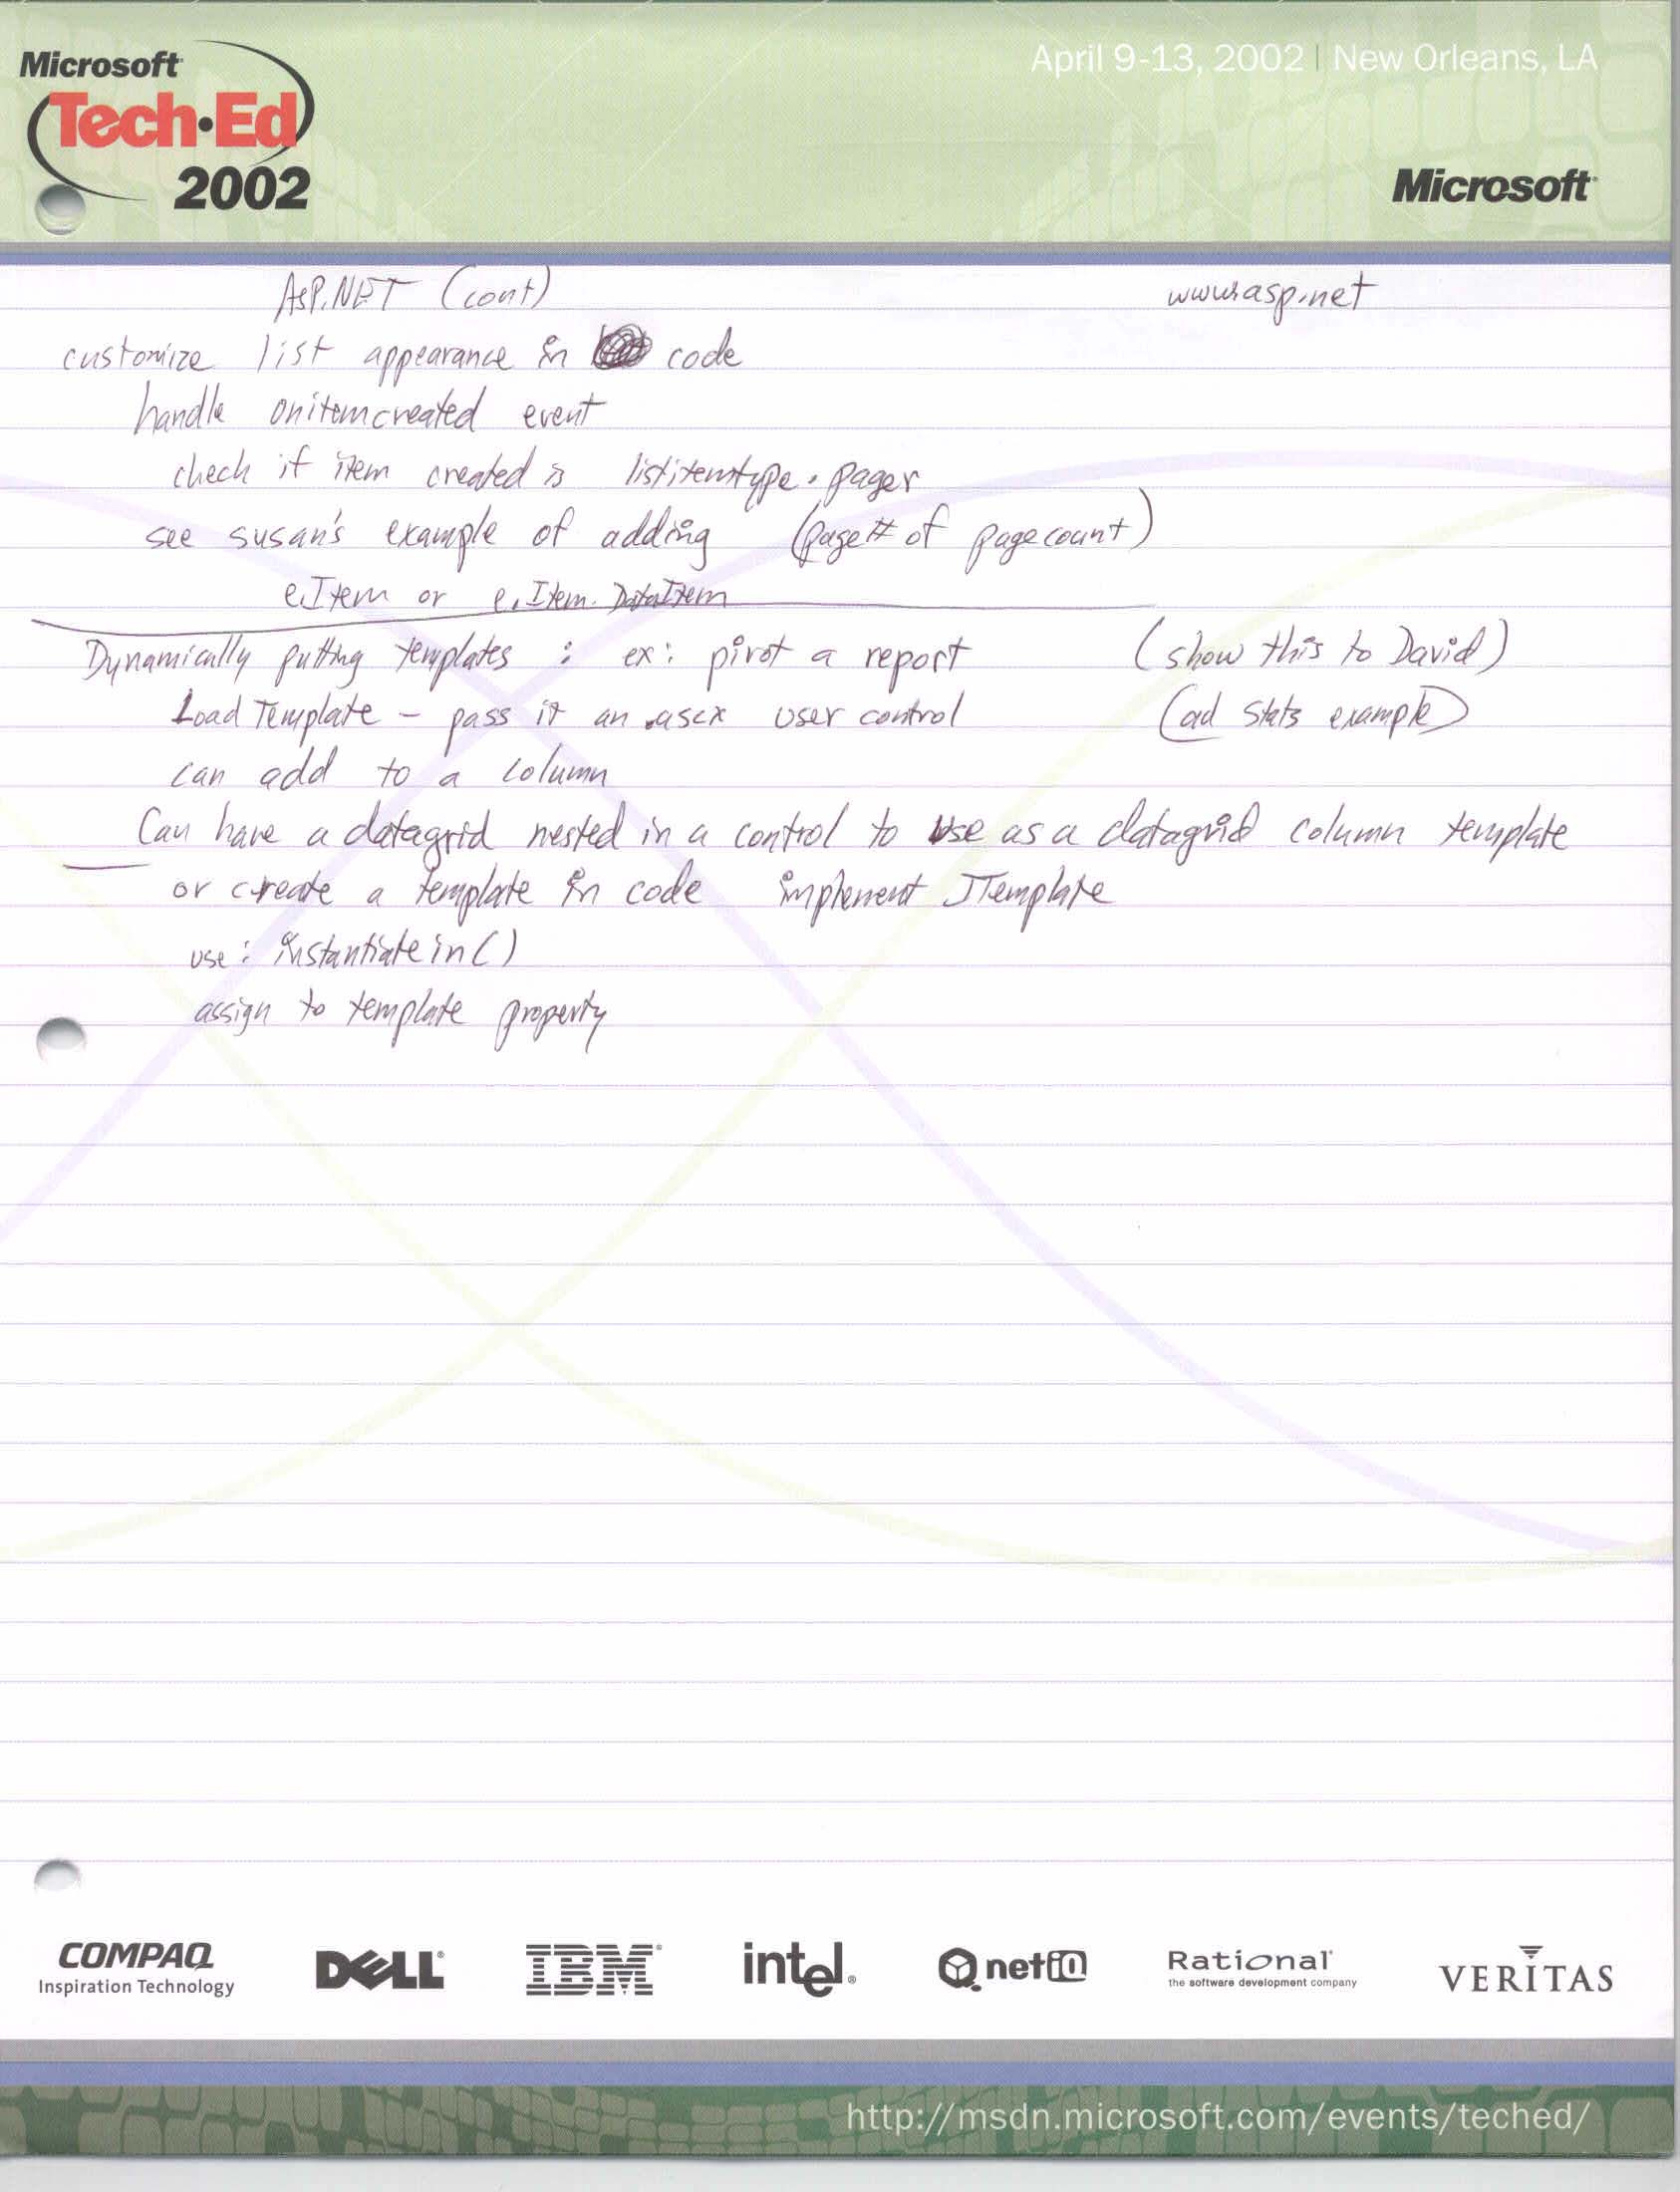 Microsoft
Tech·Ed
2002
April 9-13, 2002 | New Orleans, LA
Microsoft
ASP.NET (cont) www.asp.net
customize list appearance in code
handle onitemcreated event
check if item created is listitemtype.pager
see susan's example of adding (page# of pagecount)
e.Item or e.Item.DataItem
Dynamically putting templates : ex: pivot a report (show this to David)
Load Template - pass it an .ascx user control (ad stats example)
can add to a column
Can have a datagrid nested in a control to use as a datagrid column template
or create a template in code implement ITemplate
use: instantiatein()
assign to template property
COMPAQ
Inspiration Technology
DELL
IBM
intel
netiQ
Rational
the software development company
VERITAS
http://msdn.microsoft.com/events/teched/